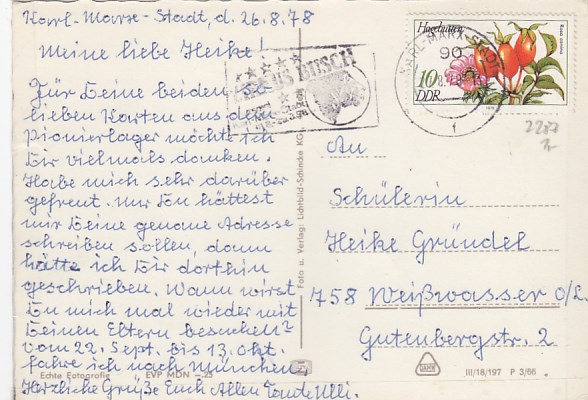 Karl-Marx-Stadt, d. 26.8.78
Meine liebe Heike!
Für Deine beiden so
lieben Karten aus dem
Pionierlager möchte ich
Dir vielmals danken.
Habe mich sehr darüber
gefreut. nur Du hättest
mir Deine genaue Adresse
schreiben sollen, dann
hätte ich Dir dorthin
geschrieben. Wann wirst
Du mich mal wieder mit
Deinen Eltern besuchen?
vom 22. Sept. bis 13. Okt.
fahre ich nach München.
Herzliche Grüße Euch Allen Tante Ulli.
Echte Fotografie
EVP MDN -.23
Foto u. Verlag: Lichtbild-Schincke KG
BUSCH
KARL-MARX-STADT
90
Hagebutten
Rosa canina
10
DDR
An
Schülerin
Heike Gründel
758 Weißwasser O/L.
Gutenbergstr. 2
III/18/197 P 3/66